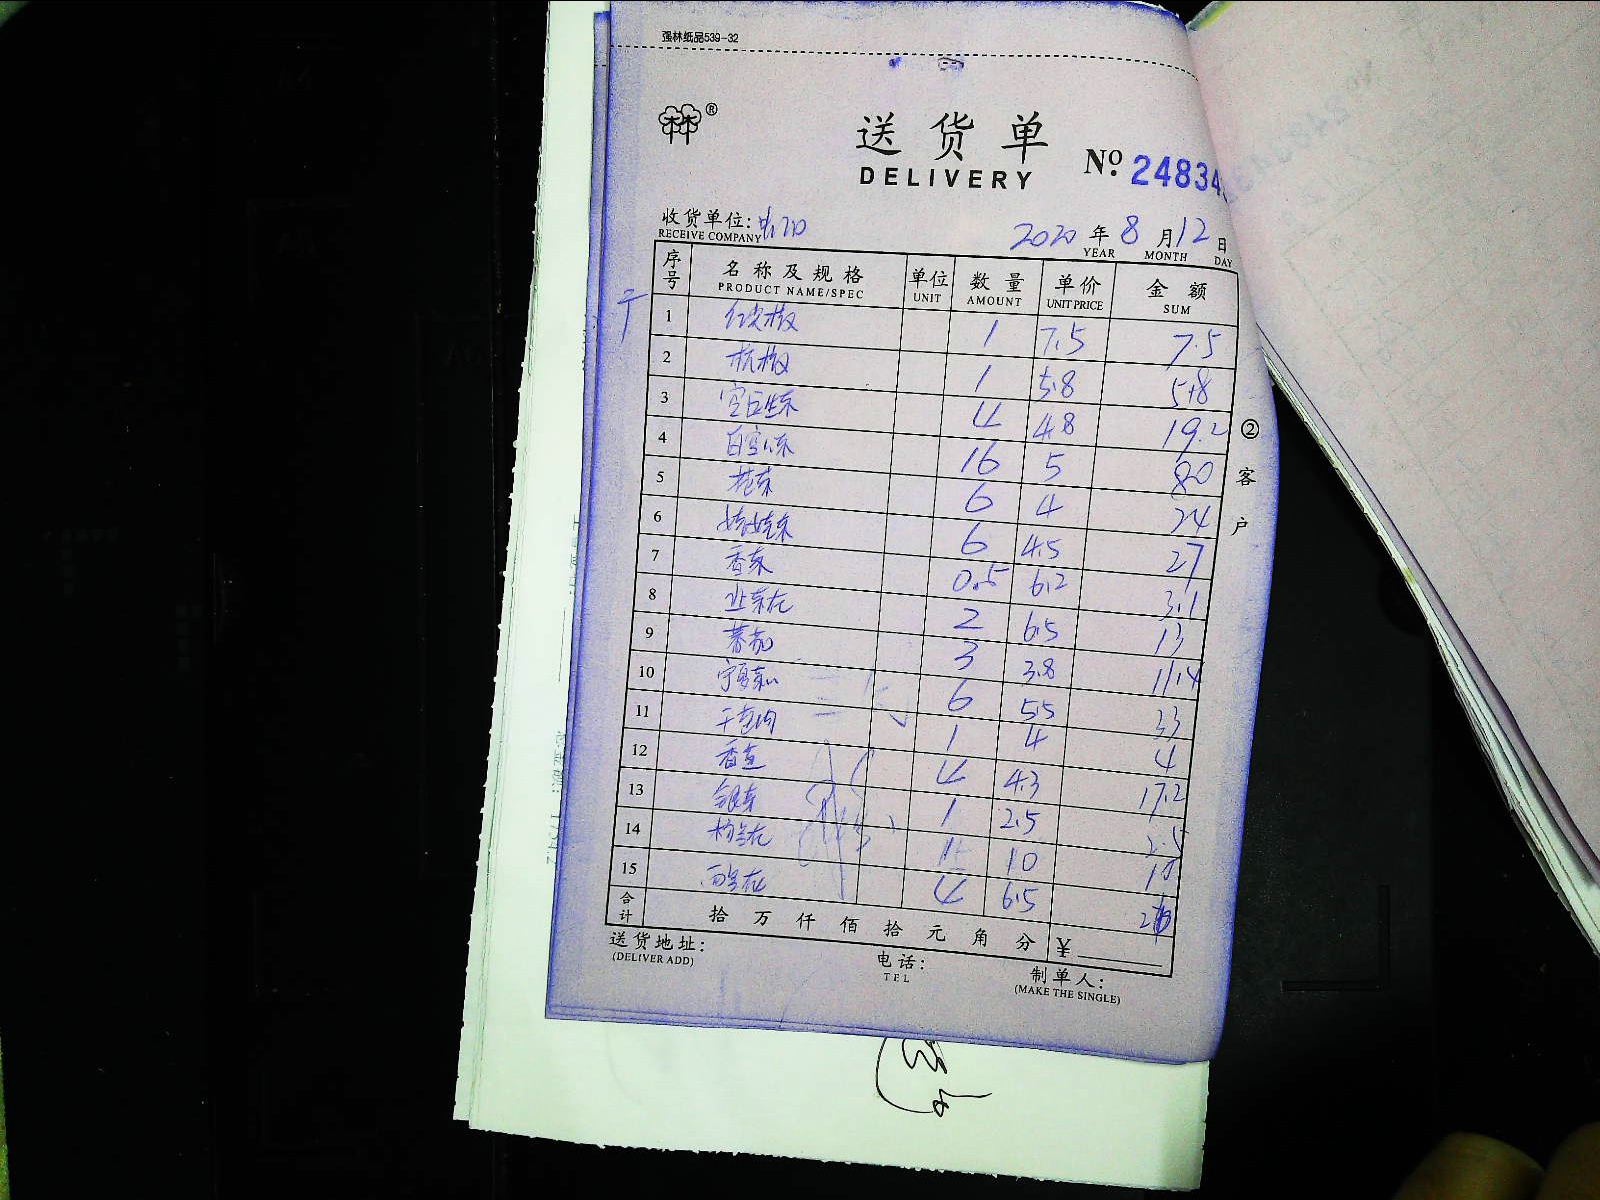 强林纸品539-32
®
送货单
DELIVERY
No. 24834
收货单位:
RECEIVE COMPANY
2020 年 8 月 12 日
YEAR MONTH DAY
序号 名称及规格 单位 数量 单价 金额
PRODUCT NAME/SPEC UNIT AMOUNT UNIT PRICE SUM
1 红尖椒 1 7.5 7.5
2 杭椒 1 5.8 5.8
3 4 4.8 19.2
4 16 5 80
5 花菜 6 4 24
6 娃娃菜 6 4.5 27
7 香菜 0.5 6.2 3.1
8 2 6.5 13
9 蕃茄 3 3.8 11.4
10 宁夏菜心 6 5.5 33
11 1 4 4
12 4 4.3 17.2
13 银芽 1 2.5 2.5
14 1 10 10
15 4 6.5 26
合计 拾 万 仟 佰 拾 元 角 分 ¥
送货地址:
(DELIVER ADD)
电话:
TEL
制单人:
(MAKE THE SINGLE)
②客户